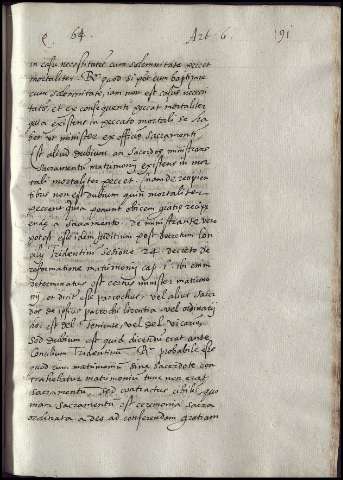 q. 64. Art. 6. 191
in casu necessitatis cum solemnitate peccet
mortaliter. R. quod si pōt cum baptizare
cum solemnitate, iam non est casus necessi
tatis, et ex consequenti peccat mortaliter
quia existens in peccato mortali se ha
bet ut minister ex officio sacramenti
Est aliud dubium an sacerdos ministrans
sacramentū matrimonij existens in mor
tali mortaliter peccet. nam de recipien
tibus non est dubium quin mortaliter
peccent quia ponunt obicem gratiae recipi
endae a sacramento. de ministrante vero
potest esse idem iudicium post decretum Con
cilij tridentini sessione 24. decreto de
reformatione matrimonij cap. 1. ibi enim
determinatur est certus minister matrimo
nij, et dicit esse parochus, vel alius sacer
dos de ipsius parochi licentia vel ordinarij
sed dubium est quid dicendū erat ante
Concilium Tridentinum. R. probabile esse
quod cum matrimoniū sine sacerdote con
trahebatur matrimoniū tunc non erat
sacramentū, sed contractus civilis, quo
niam sacramentū est ceremonia sacra
ordinata a deo ad conferendam gratiam